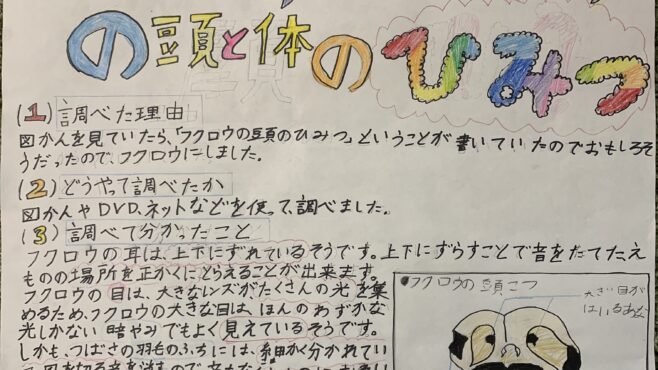 の頭と体のひみつ
(1) 調べた理由
図かんを見ていたら、「フクロウの頭のひみつ」ということが書いていたのでおもしろそ
うだったので、フクロウにしました。
(2) どうやって調べたか
図かんやDVD、ネットなどを使って、調べました。
(3) 調べて分かったこと
フクロウの耳は、上下にずれているそうです。上下にずらすことで音をたてたえ
ものの場所を正かくにとらえることが出来ます。
フクロウの目は、大きなレンズがたくさんの光を集
めるため、フクロウの大きな目は、ほんのわずかな
光しかない暗やみでもよく見えているそうです。
しかも、つばさの羽毛のふちには、細かく分かれてい
フクロウの頭こつ
大きい目が
はいるあな